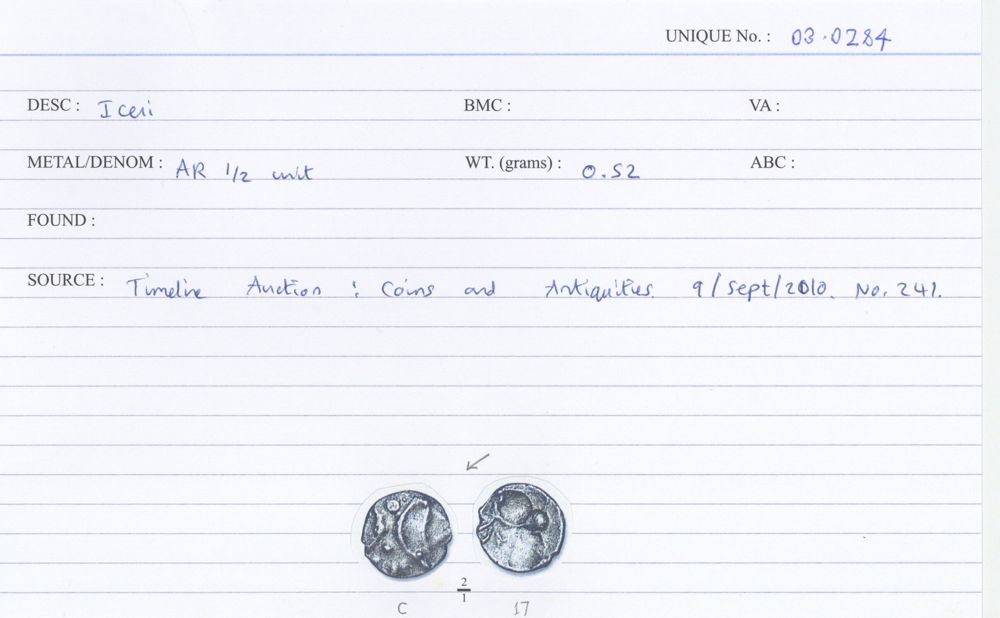 UNIQUE No. : 03.0284
DESC : Iceni BMC : VA :
METAL/DENOM : AR 1/2 unit WT. (grams) : 0.52 ABC :
FOUND :
SOURCE : Timeline Auction : Coins and Antiquities. 9/Sept/2010. No. 241.
2
1
C 17